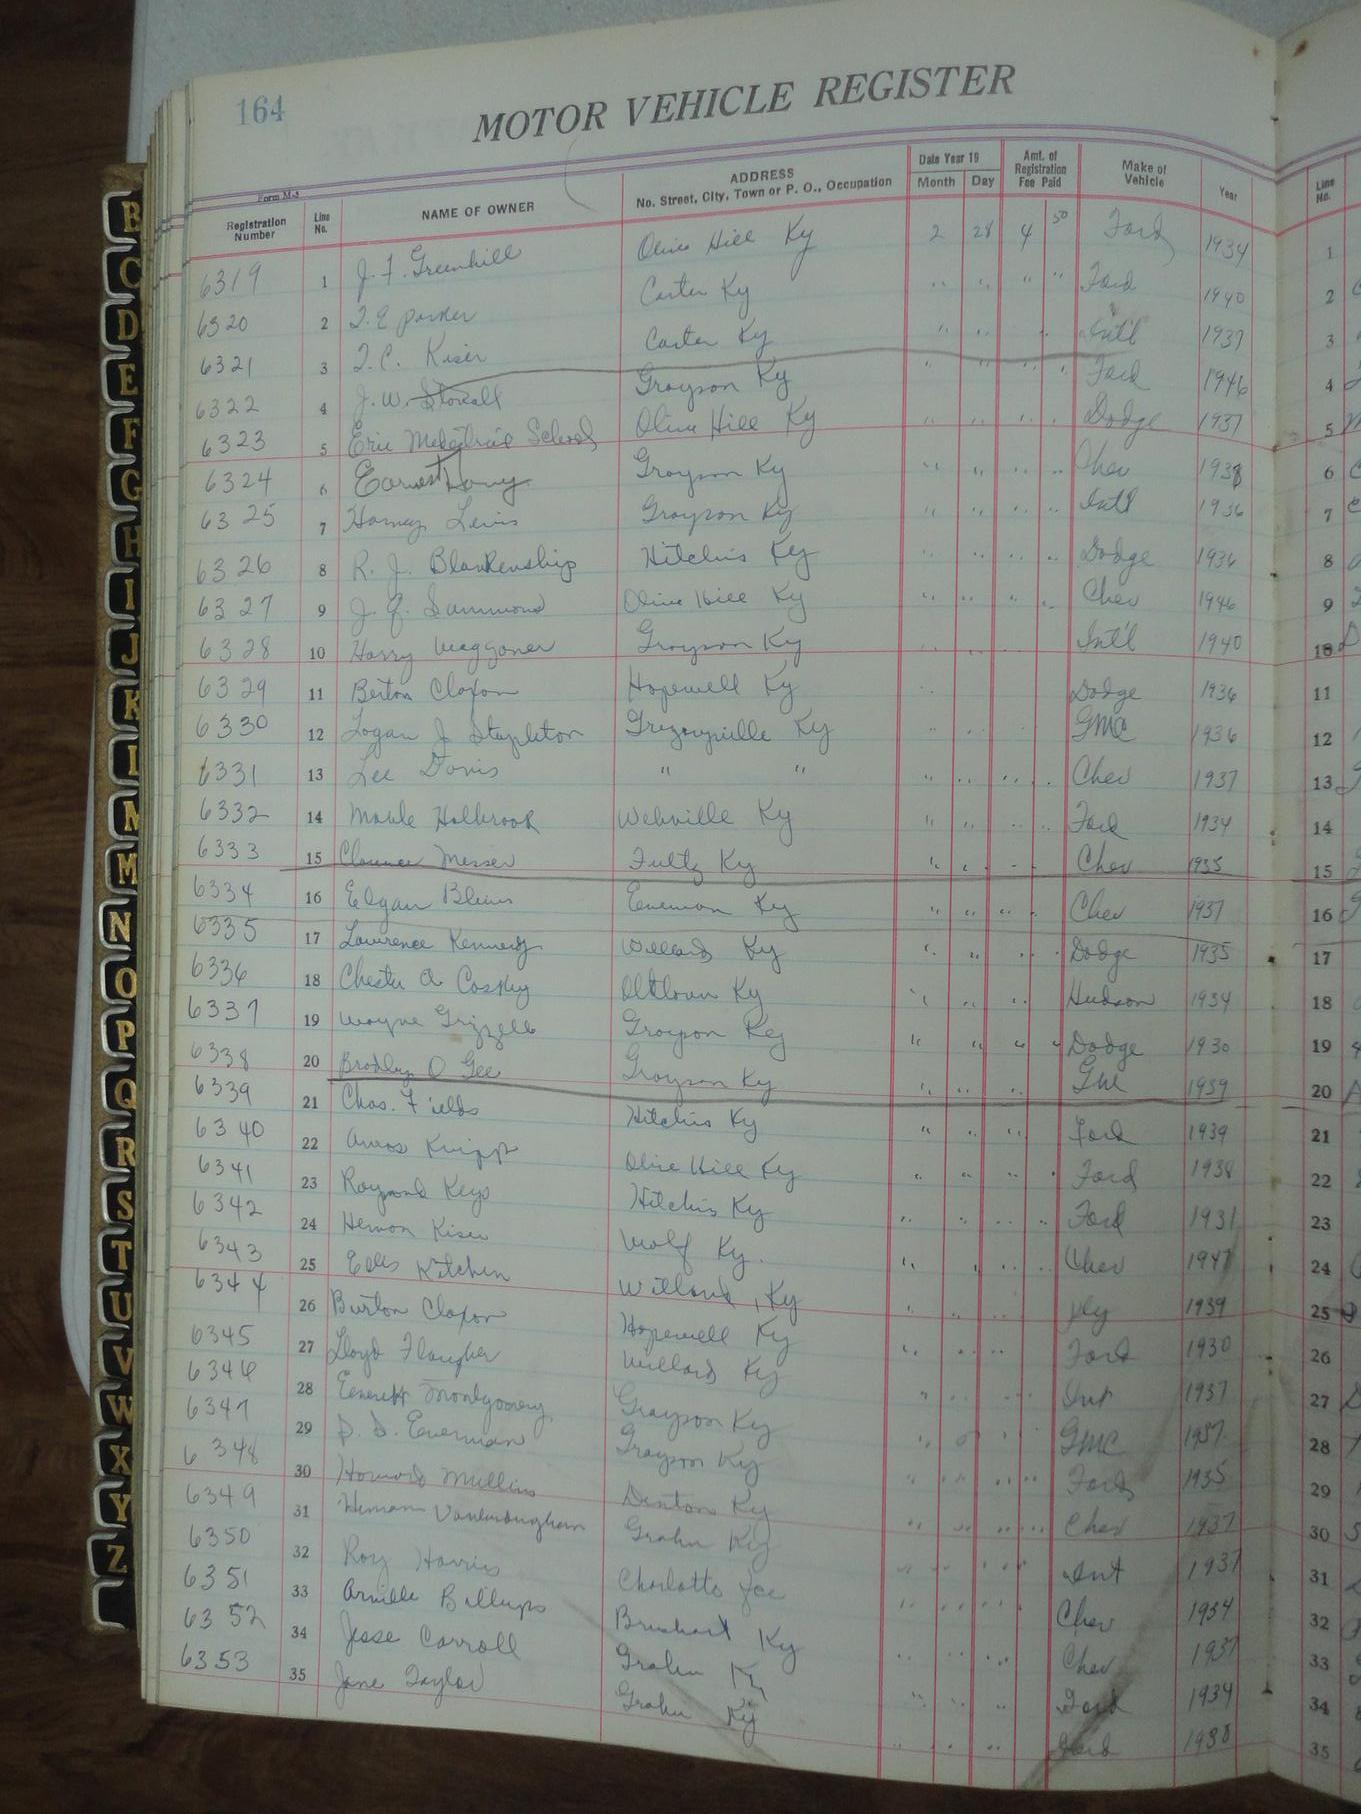 164
MOTOR VEHICLE REGISTER
Form M-3
Registration Number Line No. NAME OF OWNER ADDRESS No. Street, City, Town or P. O., Occupation Date Year 19 Month Day Amt. of Registration Fee Paid Make of Vehicle Year Line No.
6319 1 J. F. Greenhill Olive Hill Ky 2 28 4 50 Ford 1934 1
6320 2 T. E Parker Carter Ky " " " " Ford 1940 2
6321 3 T. C. Kiser Carter Ky " " " Int'l 1937 3
6322 4 J. W. Stovall Grayson Ky " " " " Ford 1946 4
6323 5 School Olive Hill Ky " " " " Dodge 1937 5
6324 6 Earnest Grayson Ky " " " " Chev 1938 6
6325 7 Harvey Lewis Grayson Ky " " " " Intl 1936 7
6326 8 R. J. Blankenship Hitchins Ky " " " " Dodge 1936 8
6327 9 J. Sammond Olive Hill Ky " " " " Chev 1946 9
6328 10 Harry Waggoner Grayson Ky " " " Int'l 1940 10
6329 11 Berton Claxon Hopewell Ky " Dodge 1936 11
6330 12 Logan J Stapleton Ky " " " GMC 1936 12
6331 13 Lee Davis " " " " " " Chev 1937 13
6332 14 Holbrook Webville Ky " " " " Ford 1934 14
6333 15 Clarence Messer Fultz Ky " " " " Chev 1935 15
6334 16 Elgan Blevins Ky " " " " Chev 1937 16
6335 17 Lawrence Kennedy Willard Ky " " " " Dodge 1935 17
6336 18 Chester A Caskey Ky " " " Hudson 1934 18
6337 19 Wayne Grizzell Grayson Ky " " " " Dodge 1930 19
6338 20 Bradley O Gee Grayson Ky " " " 1939 20
6339 21 Chas. Fields Hitchins Ky " " " Ford 1939 21
6340 22 Amos Knipp Olive Hill Ky " " " " Ford 1938 22
6341 23 Raymond Keys Hitchins Ky " " " " Ford 1931 23
6342 24 Kiser Wolf Ky. " " " " Chev 1947 24
6343 25 Kitchen Willard, Ky " " " Ply 1939 25
6344 26 Burton Claxon Hopewell Ky " " " Ford 1930 26
6345 27 Lloyd Flaugher Willard Ky " " " Int 1937 27
6346 28 Everett Montgomery Grayson Ky " " " GMC 1937 28
6347 29 Everman Grayson Ky " " " " Ford 1935 29
6348 30 Howard Mullins Denton Ky " " " " Chev 1937 30
6349 31 Grahn Ky " " " " Int 1937 31
6350 32 Roy Harris " " " " Chev 1934 32
6351 33 Billups Ky " " " Chev 1937 33
6352 34 Jesse Carroll Grahn Ky " " " Ford 1934 34
6353 35 Jane Taylor Grahn Ky " " " Ford 1938 35
B
C
D
E
F
G
H
I
J
K
L
M
M
N
O
P
Q
R
S
T
U
V
W
X
Y
Z